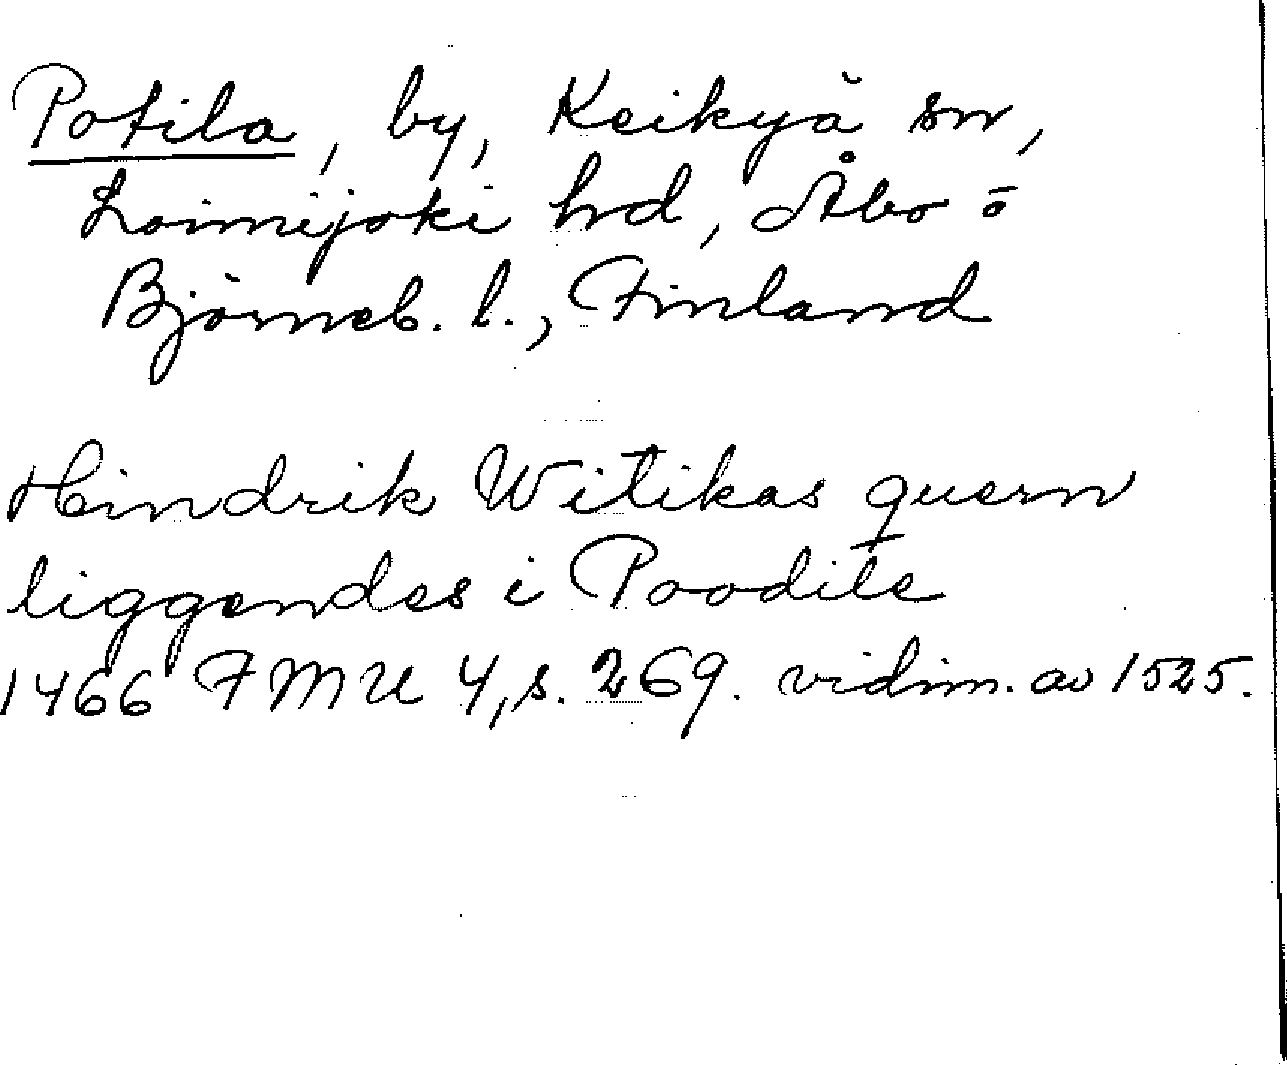 Potila, by, Keikyä sn,
Loimijoki hd, Åbo o
Björneb. l., Finland
Hindrik Witikas quern
liggendes i Poodite
1466 FMU 4, s. 269. vidim. av 1525.